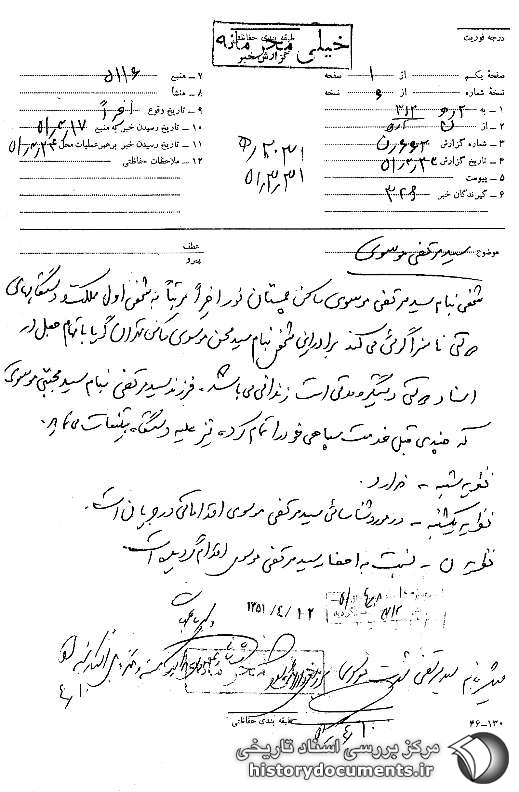 خیلی محرمانه
طبقه بندی حفاظتی
گزارش خبر
درجه فوریت
صفحه یکم از ۱ صفحه
نسخه شماره از ۶ نسخه
۱ ـ به ۳۱۲
۲ ـ از
۳ ـ شماره گزارش
۴ ـ تاریخ گزارش
۵ ـ پیوست
۶ ـ گیرندگان خبر ۳۲۶
۷ ـ منبع ۵۱۱۶
۸ ـ منشأ
۹ ـ تاریخ وقوع اخیراً
۱۰ ـ تاریخ رسیدن خبر به منبع ۵۱/۳/۱۷
۱۱ ـ تاریخ رسیدن خبر برهبر عملیات محل
۱۲ ـ ملاحظات حفاظتی
۵۱/۳/۳۱
موضوع سید مرتضی موسوی
عطف
پیرو
شخصی بنام سید مرتضی موسوی ساکن چمستان نور اخیراً مرتباً به شخص اول مملکت و دستگاههای
دولتی ناسزاگوئی می کند برادر این شخص بنام سید محسن موسوی ساکن تهران گویا باتهام جعل در
اسناد دولتی دستگیر و مدتی است زندانی می باشد. فرزند سید مرتضی بنام سید مجتبی موسوی
که چندی قبل خدمت سپاهی خود را تمام کرده نیز علیه دستگاه تبلیغات می نماید.
نظریه شنبه ـ ندارد.
نظریه یکشنبه ـ در مورد شناسائی سید مرتضی موسوی اقداماتی در جریان است.
نظریه ن ـ نسبت به احضار سید مرتضی موسوی اقدام گردیده است.
۱۳۵۱/۴/۱۰
طبقه بندی حفاظتی
۴۶-۱۳۰
مرکز بررسی اسناد تاریخی
historydocuments.ir